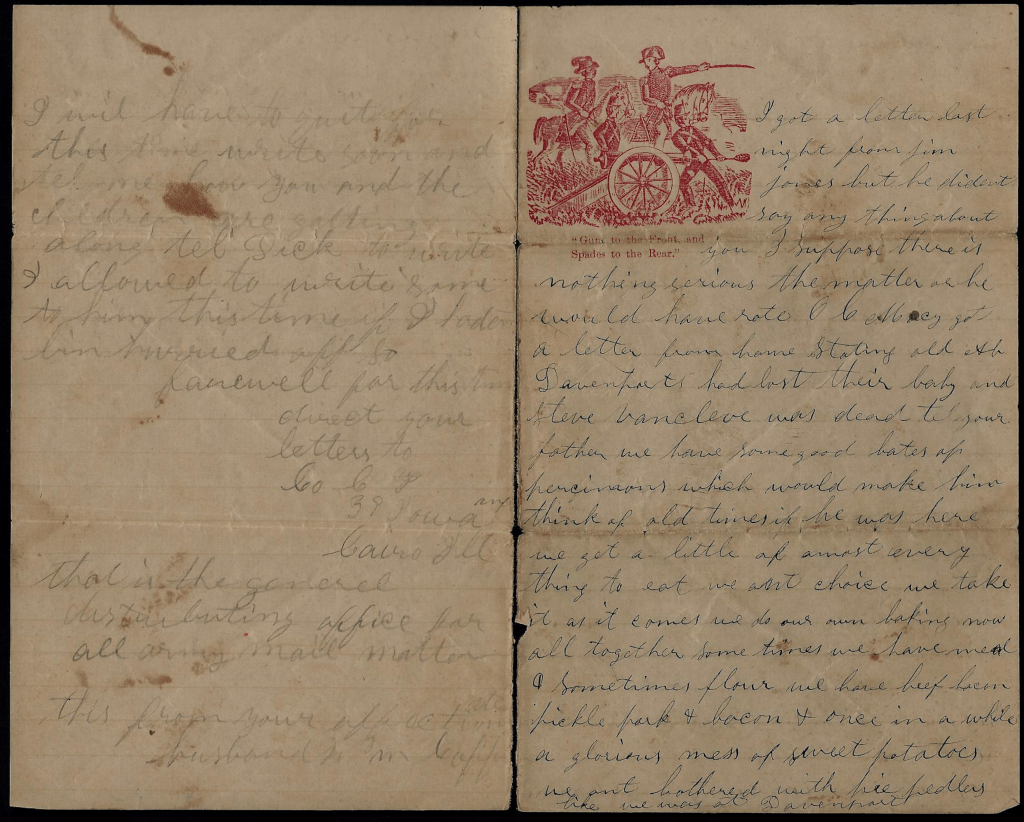 I will have to quit for
this time write soon and
tel me how you and the
children are getting
along tel Dick to write
I allowed to write some
to him this time if I hadn
bin hurried off so
farewell for this time
direct your
letters to
Co C
39 Iowa inf
Cairo Ill
that is the general
distributing office for
all army mail matter
this from your affectionate
husband Wm Capp
I got a letter last
night from jim
jones but he dident
say any thing about
"Guns to the Front, and
Spades to the Rear."
you I suppose there is
nothing serious the matter or he
would have rote C C Macy got
a letter from home stating old Ab
Davenports had lost their baby and
steve vancleve was dead tel your
father we have some good bates of
percimons which would make him
think of old times if he was here
we get a little of amost every
thing to eat we ant choice we take
it as it comes we do our own baking now
all together some times we have meal
& sometimes flour we have beef bacon
pickle pork & bacon & once in a while
a glorious mess of sweet potatoes
we ant bothered with pie pedlers
like we was at Davenport